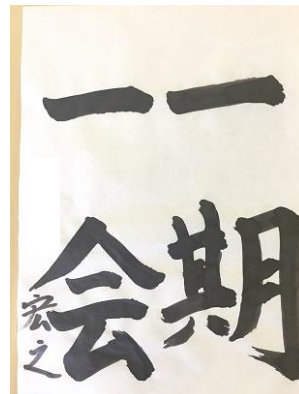 一期
一会
宏之